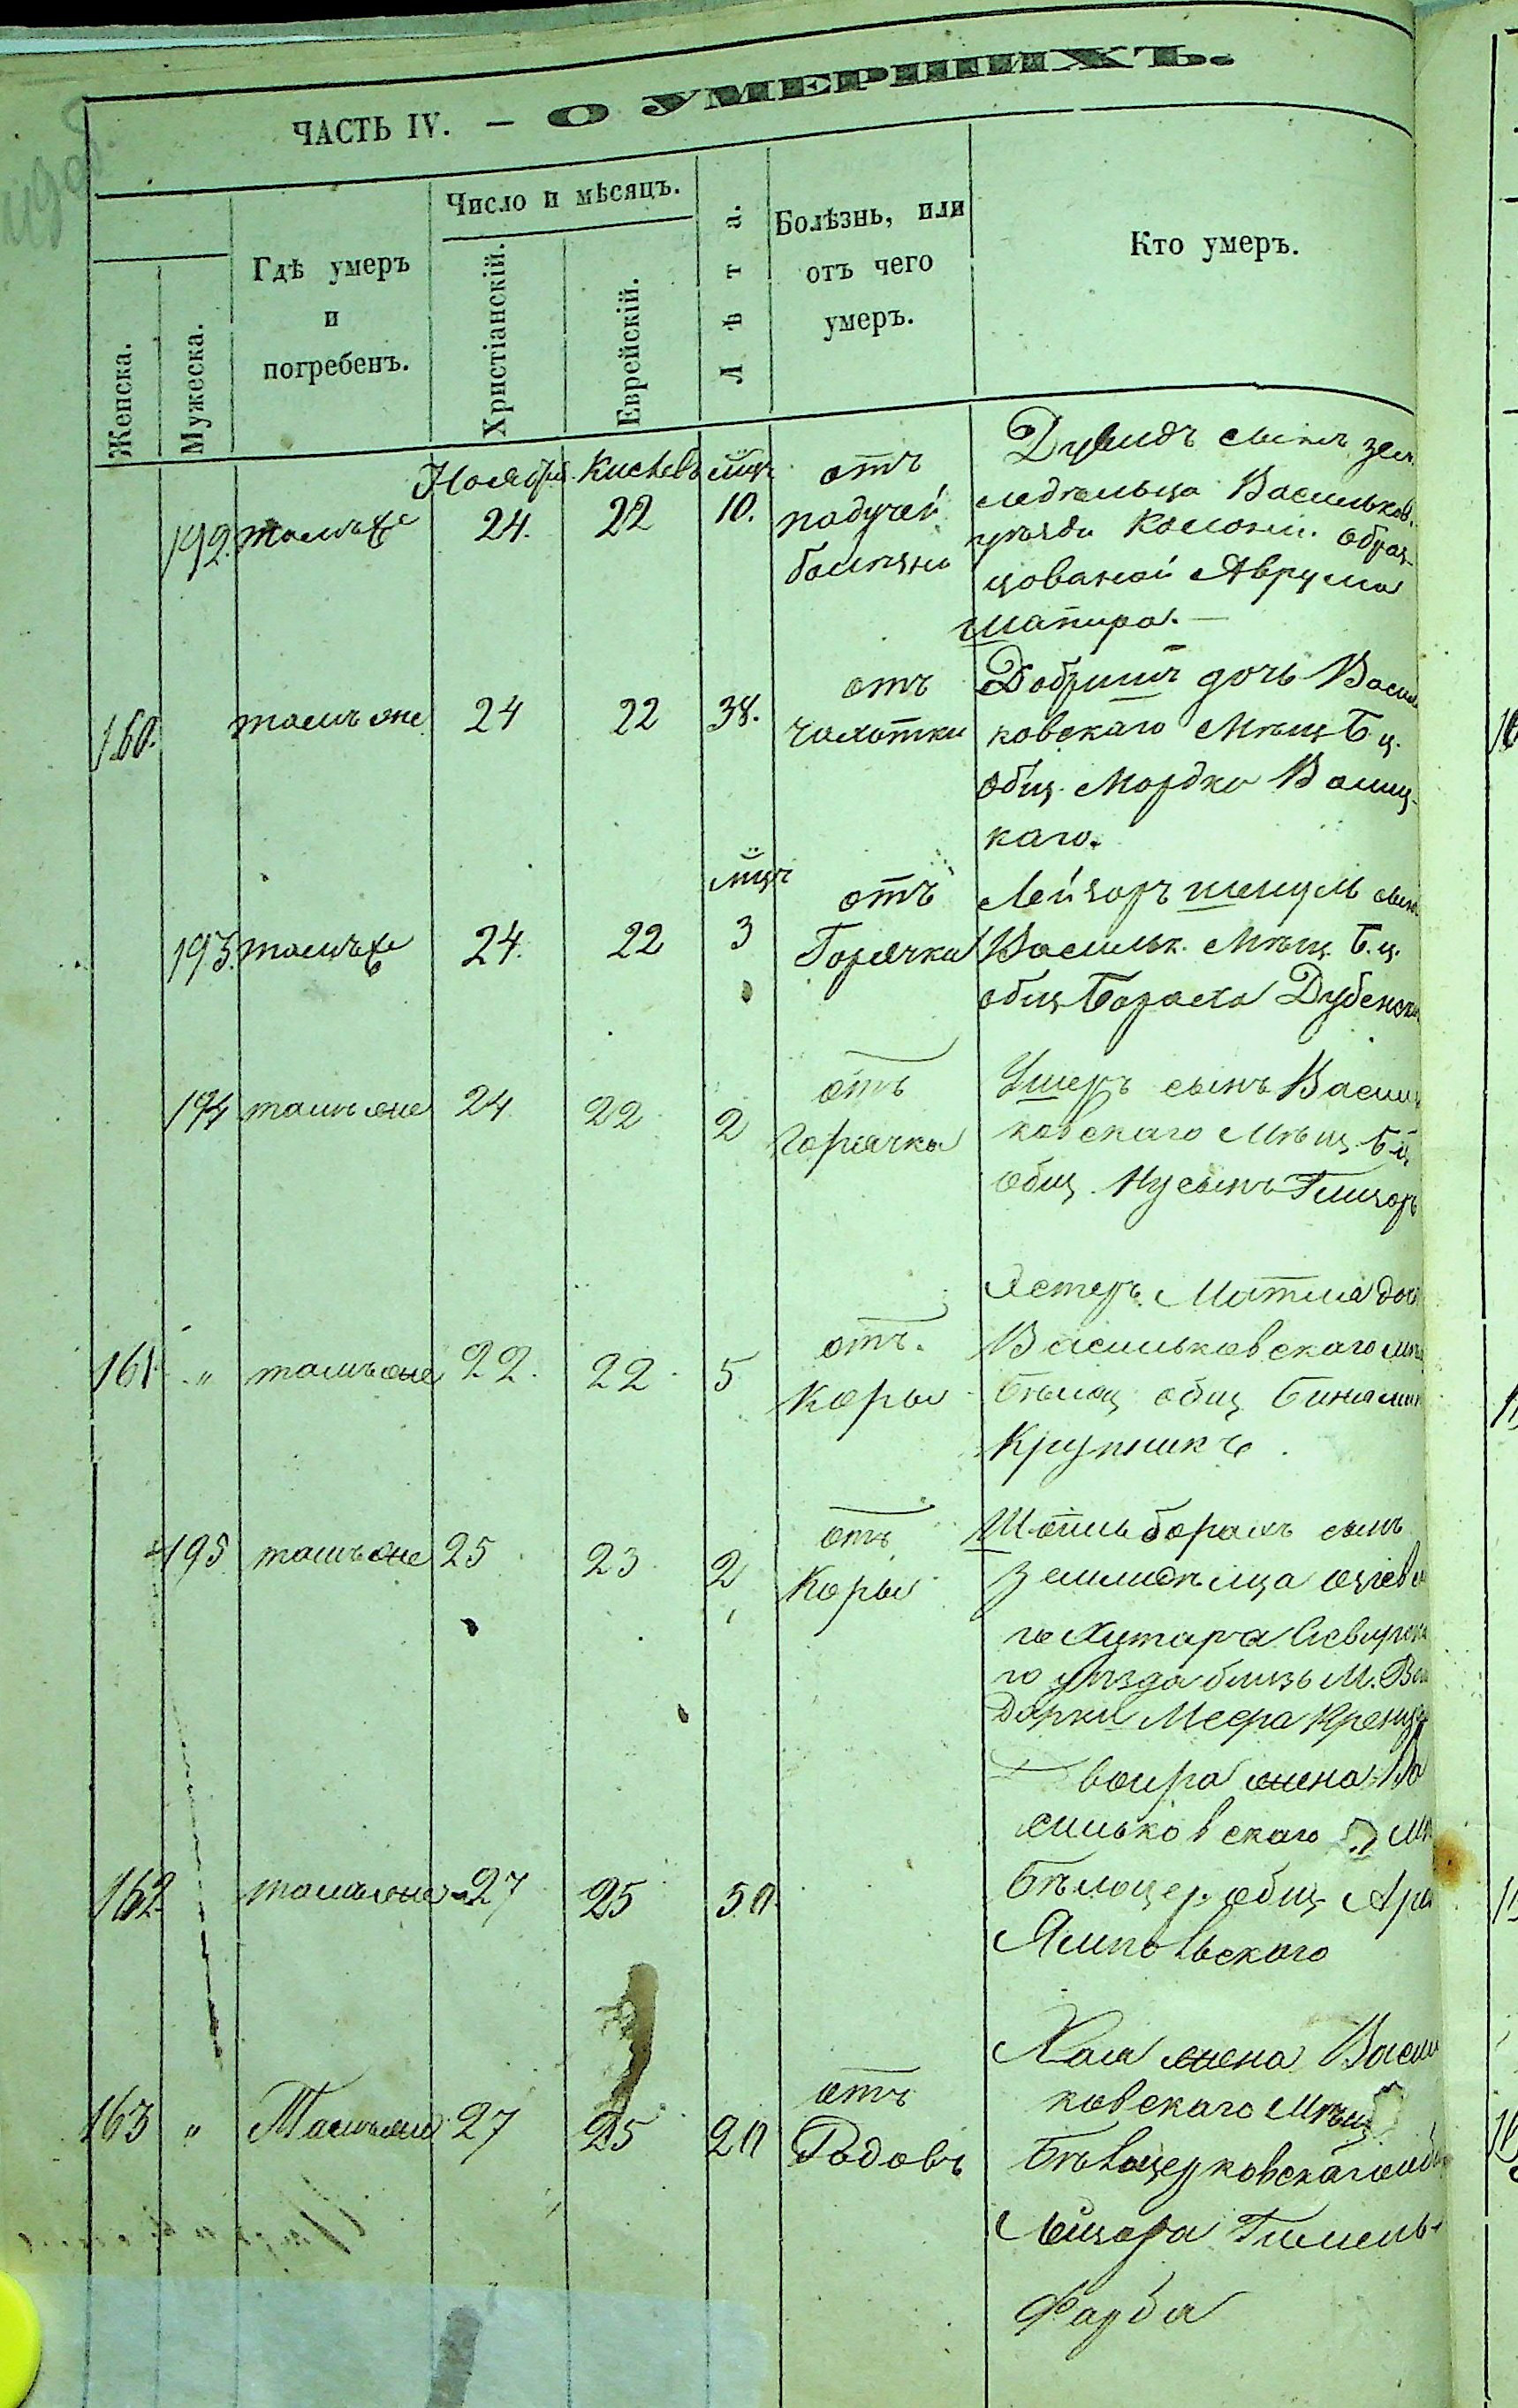 ЧАСТЬ IV. — О УМЕРШИХЪ.
Женска.
Мужеска.
Гдѣ умеръ
и
погребенъ.
Число и мѣсяцъ.
Христіанскій.
Еврейскій.
Лѣта.
Болѣзнь, или
отъ чего
умеръ.
Кто умеръ.
Ноября Кислевъ мцъ
192. тамъже 24. 22 10.
отъ
падучей
болѣзни
Дувидъ сынъ зем
ледѣльца Васильков.
уѣзда Колоніи Образ-
цованой Аврума
Шапира. —
160. тамъ же 24 22 38.
отъ
чахотки
Добришъ дочь Василь
ковскаго Мѣщ Б ц.
Общ. Мордка Волиц-
каго.
193. тамъже 24. 22 мцъ 3
отъ
Горячки
Лейзоръ сынъ
Васильк. Мѣщ Б. ц.
общ Бораха Дубенска
194 тамъ же 24 22 2
отъ
Горячки
Ушеръ сынъ Василь
ковскаго Мѣщ Б ц
общ. Нусынъ
161 " тамъ же 22. 22 5
отъ.
Коры
Эстеръ Матля доч
Васильковскаго мѣ
Бѣлоц общ Биниамин
Крупникъ.
195 тамъ же 25 23 2
отъ
Коры
борахъ сынъ
Земледѣлца
го Хутара Сквирска
го уѣзда близь М. Во
Дарки
162 тамъже 27 25 50
Двойра жена Ва
сильковскаго Мѣ
Бѣлоцер. общ Аро
Ямпольскаго
163 " Тамъже 27 25 20
отъ
Родовъ
Хая жена Василь
ковскаго Мѣщ
Бѣлоцерковскаго об
Лейзора Гимель-
Фарба